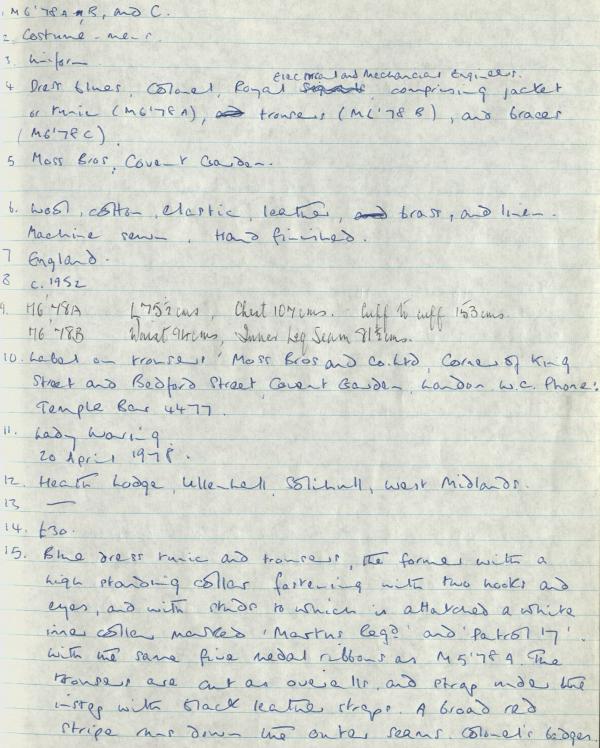 1. M6'78A, B, and C.
2. Costume - mens
3. Uniform
Electrical and Mechanical Engineers.
4 Dress blues, Colonel, Royal Signals, comprising jacket
or tunic (M6'78A), and trousers (M6'78B), and braces
(M6'78C)
5 Moss Bros, Covent Garden.
6. Wool, cotton, elastic, leather, and brass, and linen.
Machine sewn, Hand finished.
7 England.
8 c.1952
9. M6'78A L 75½cms, Chest 107cms. Cuff to cuff 153cms.
M6'78B Waist 94cms, Inner Leg Seam 81½cms.
10. Label on trousers 'Moss Bros and Co. Ltd, Corner of King
Street and Bedford Street, Covent Garden, London W.C. Phone:
Temple Bar 4477.
11. Lady Waring.
20 April 1978.
12. Heath Lodge, Ullenhall, Solihull, West Midlands.
13 —
14. £30.
15. Blue dress tunic and trousers, the former with a
high standing collar fastening with two hooks and
eyes, and with studs to which is attatched a white
inner collar marked 'Martus Regd' and 'Patrol 17'.
With the same five medal ribbons as M5'78A. The
trousers are cut as overalls, and strap under the
instep with black leather straps. A broad red
stripe runs down the outer seams. Colonel's badges